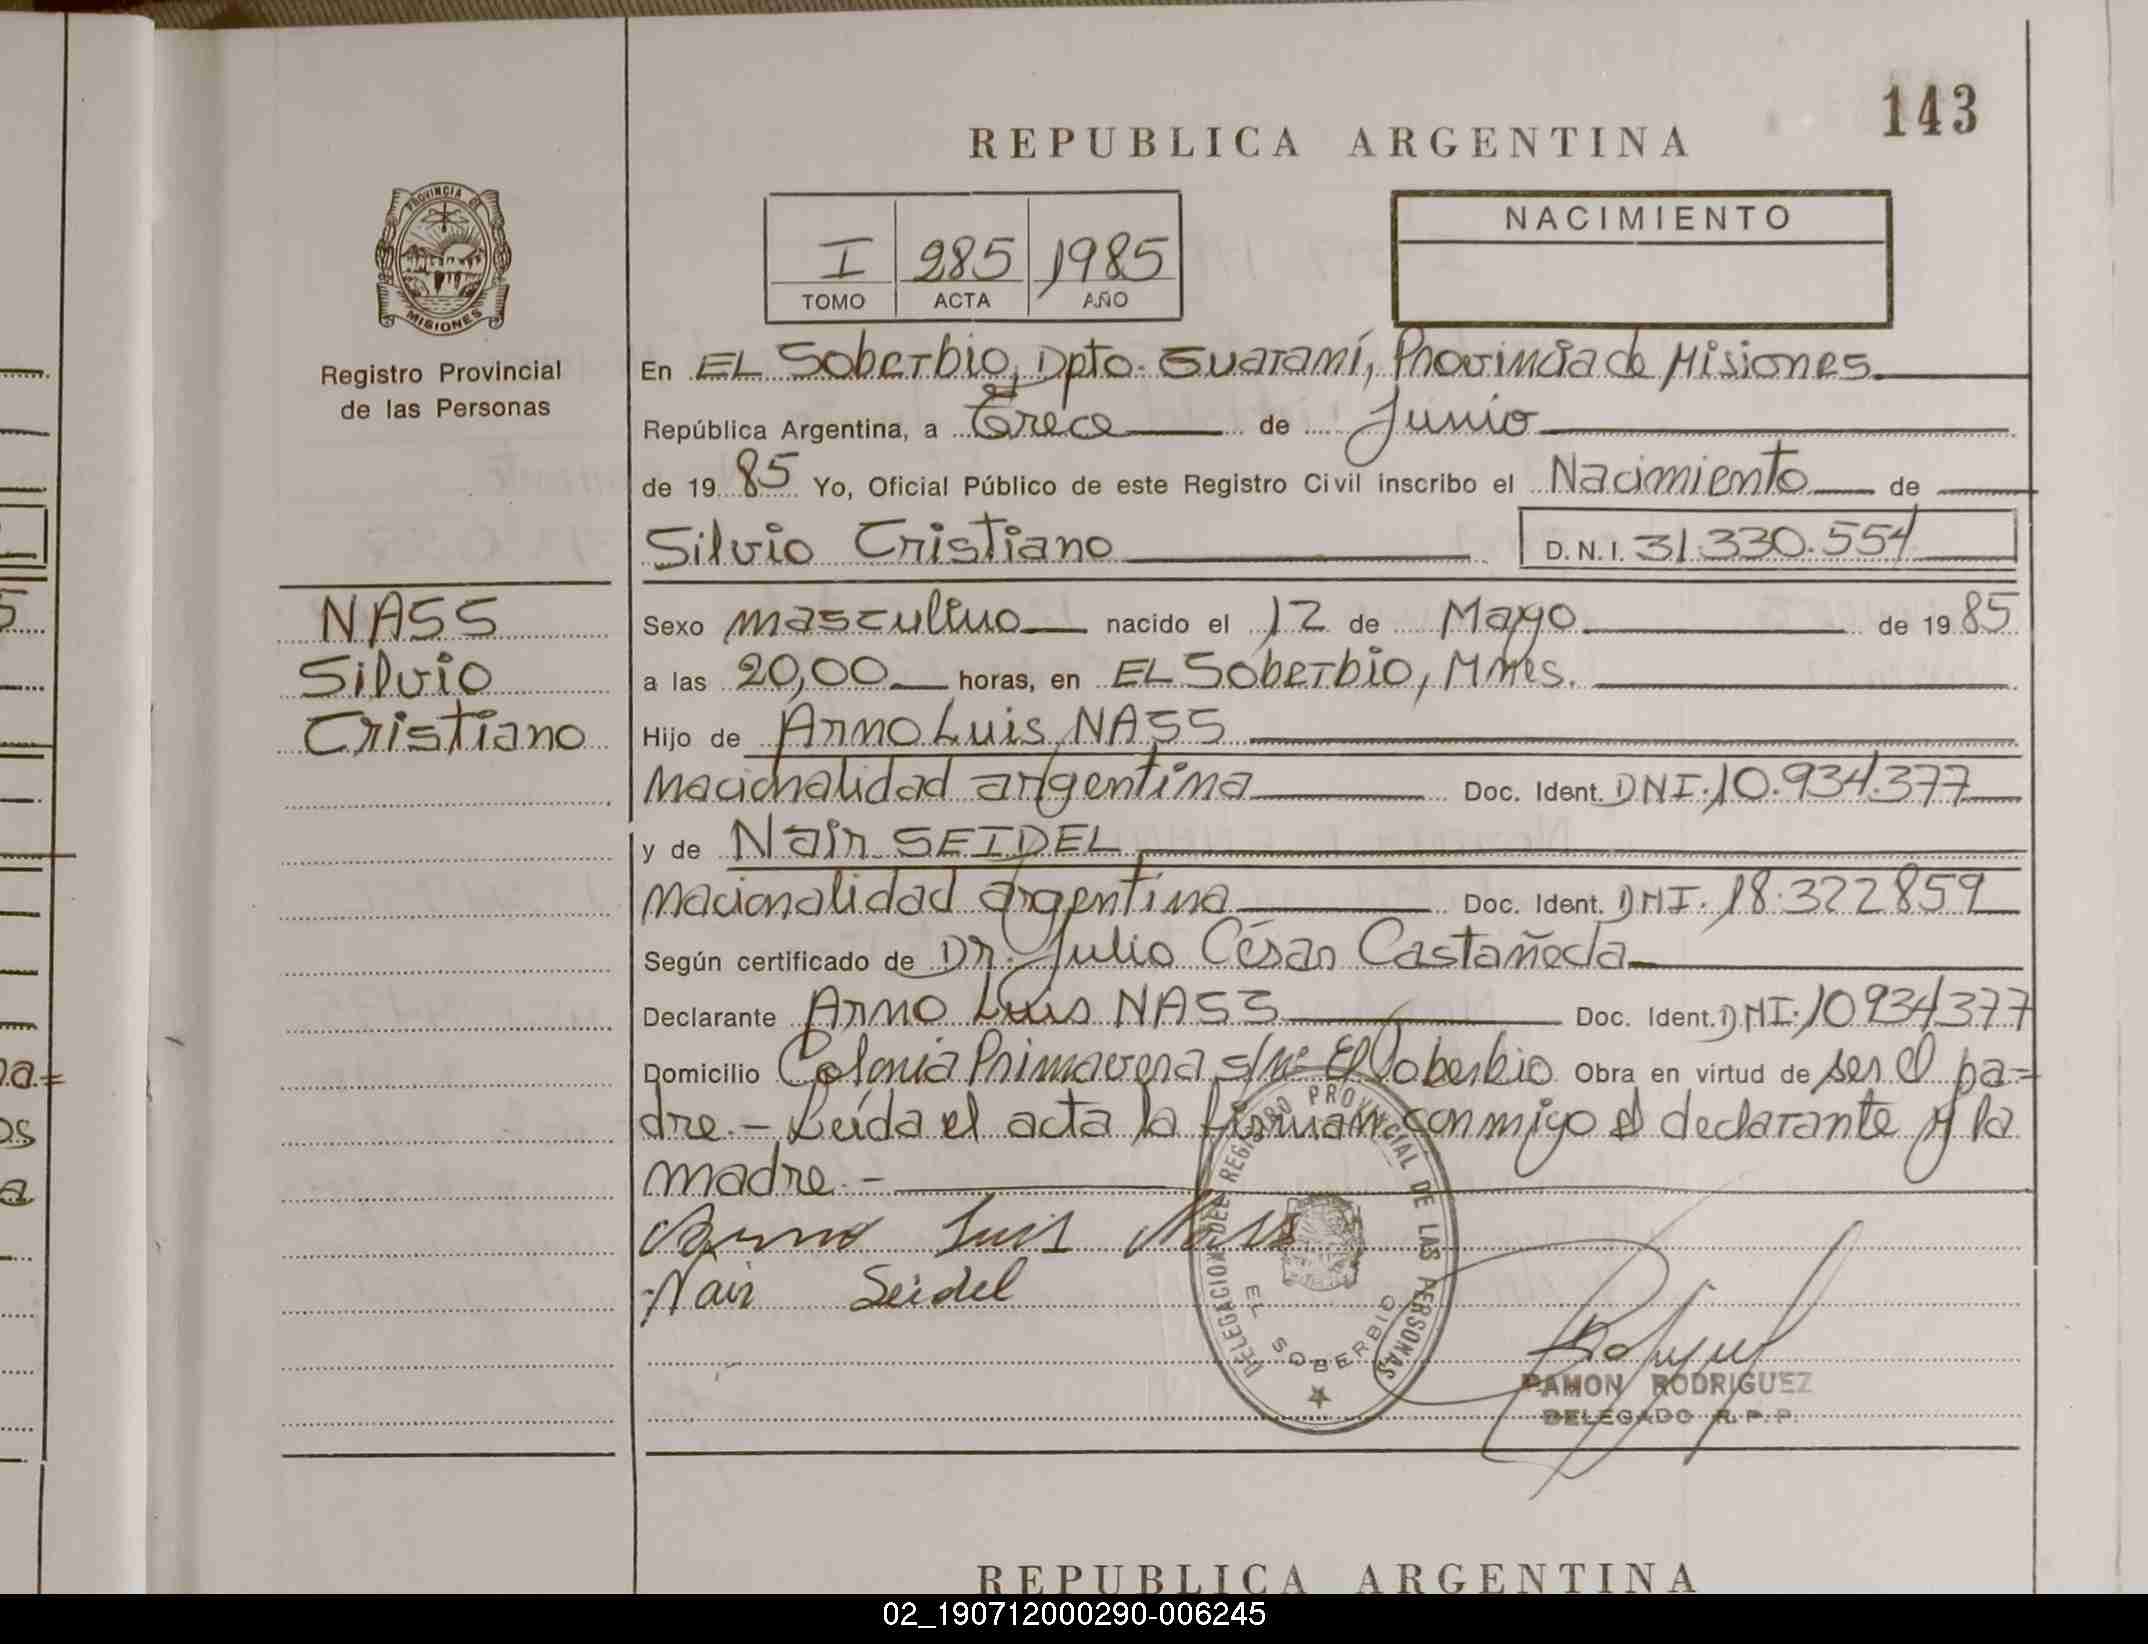 143
REPUBLICA ARGENTINA
PROVINCIA DE
MISIONES
Registro Provincial
de las Personas
I 285 1985
TOMO ACTA AÑO
NACIMIENTO
En EL Soberbio, Dpto. Guaraní, Provincia de Misiones.
República Argentina, a Trece de Junio
de 1985 Yo, Oficial Público de este Registro Civil inscribo el Nacimiento de
Silvio Cristiano D.N.I. 31.330.554
NASS
Silvio
Cristiano
Sexo masculino nacido el 12 de Mayo de 1985
a las 20,00 horas, en EL Soberbio, Mnes.
Hijo de Arno Luis NASS
nacionalidad argentina Doc. Ident. DNI. 10.934.377
y de Nair SEIDEL
nacionalidad argentina Doc. Ident. DNI. 18.322859
Según certificado de Dr. Julio César Castañeda
Declarante Arno Luis NASS Doc. Ident. DNI. 10934377
Domicilio Colonia Primavera s/Nº El Soberbio Obra en virtud de ser el pa=
dre.- Leída el acta la firman conmigo el declarante y la
madre.-
Arno Luis Nass
Nair Seidel
DELEGACION DEL REGISTRO PROVINCIAL DE LAS PERSONAS
EL SOBERBIO
RAMON RODRIGUEZ
DELEGADO R.P.P.
REPUBLICA ARGENTINA
02_190712000290-006245